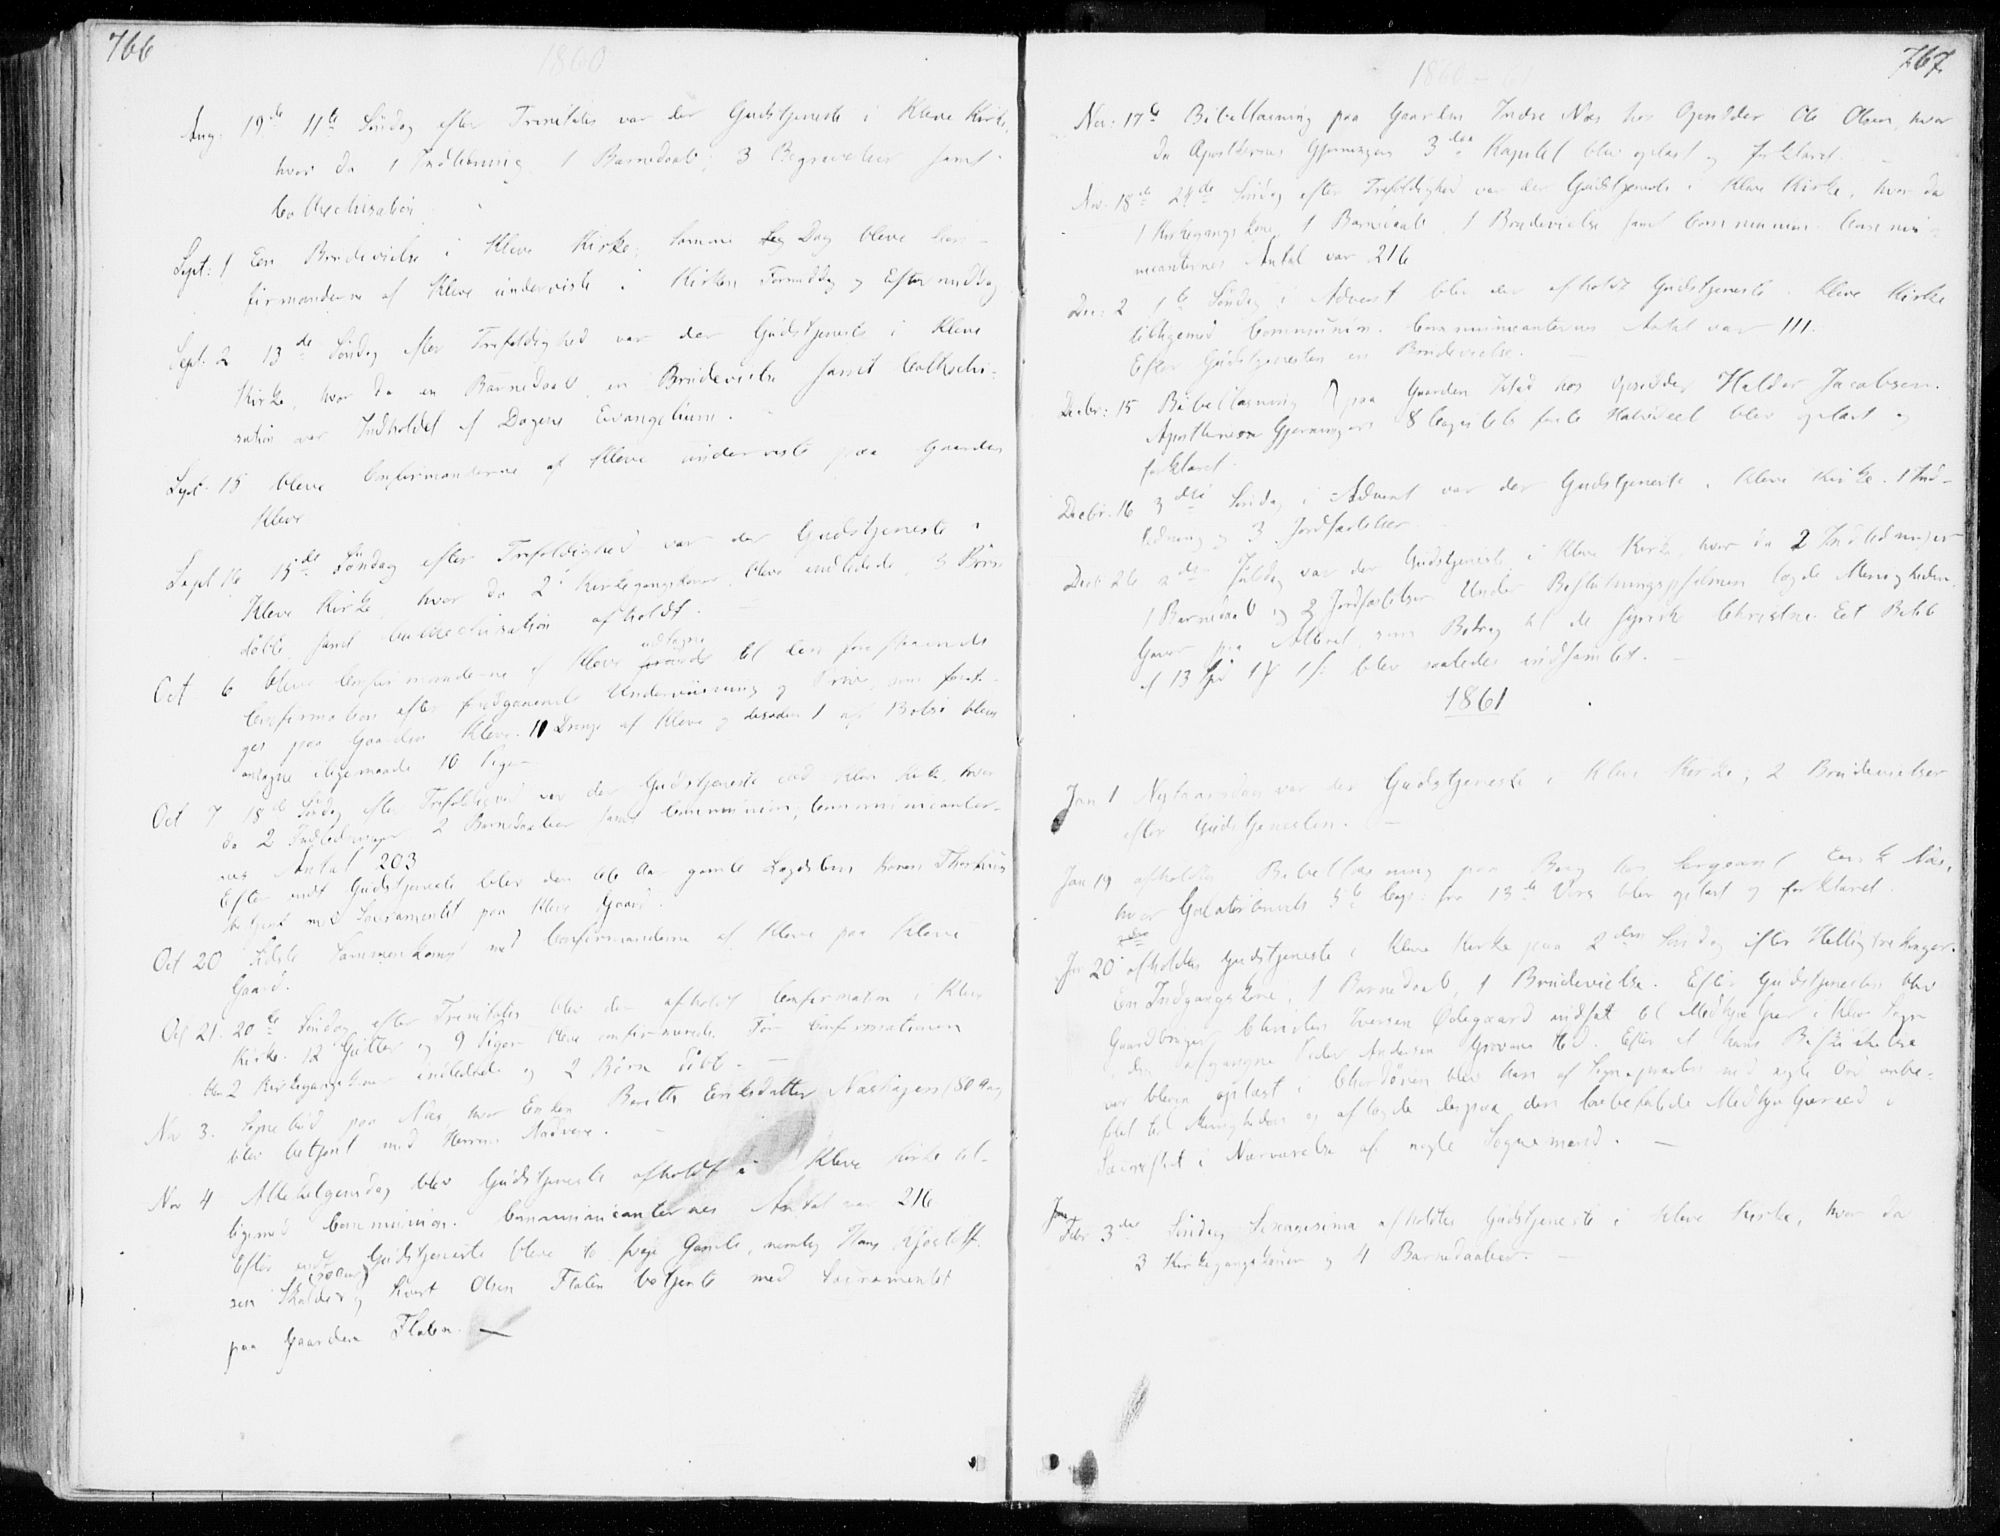 766
1860
Aug. 19de 11te Søndag efter Trinitatis var der Gudstjeneste i Kleve Kirke,
hvor da 1 Indledning, 1 Barnedaab, 3 Begravelser samt
Cathechisation
Sept: 1 Een Brudevielse i Kleve Kirke; samme Dag bleve Con-
firmanderne af Kleve underviste i Kirken Formiddag og Eftermiddag
Sept. 2 13de Søndag efter Trefoldighed var der Gudstjeneste i Kleve
Kirke, hvor da en Barnedaab, en Brudevielse samt Cathechi-
sation over Indholdet af Dagens Evangelium.
Sept. 15 bleve Confirmanderne af Kleve underviste paa Gaarden
Kleve
Sept 16 15de Søndag efter Trefoldighed var der Gudstjeneste i
Kleve Kirke, hvor da 2 Kirkegangskoner bleve indledede, 3 Børn
døbte samt Cathechisation afholdt.
Oct 6 bleve Confirmanderne af Kleve udtagne til den forestaaende
Confirmation efter foregaaende Underviisning og Prøve, som foreto-
ges paa Gaarden Kleve. 11 Drenge af Kleve og desuden 1 af Bolsø bleve
antagne, ligemaade 10 Piger
Oct 7 18de Søndag efter Trefoldighed var der Gudstjeneste ved Kleve Kirke, hvor
da 2 Indledninger, 2 Barnedaaber samt Communion, Communicanter-
nes Antal 203
Efter endt Gudstjeneste blev den 66 Aar gamle Lægdslem Maren
betjent med Sacramentet paa Kleve Gaard.
Oct 20 Sidste Sammenkomst med Confirmanderne af Kleve paa Kleve
Gaard.
Oct 21. 20de Søndag efter Trinitatis blev der afholdt Confirmation i Kleve
Kirke. 12 Gutter og 9 Piger bleve confirmerede. Før Confirmationen
blev 2 Kirkegangskoner indledede og 2 Børn døbt. —
Nov 3. Sognebud paa Næs, hvor Enken Berethe Eriksdatter (80 Aar)
blev betjent med Herrens Nadvere. —
Nov 4 Allehelgensdag blev Gudstjeneste afholdt i Kleve Kirke til-
ligemed Communion. Communicanternes Antal var 216
Efter endt Gudstjeneste bleve to svage Gamle, nemlig Hans
sen (80 Aar) og Olsen Flaten betjente med Sacramentet
paa Gaarden Flaten. —
767.
1860 - 61
Nov. 17de Bibellæsning paa Gaarden Indre Næs hos Opsidder Ole Olsen, hvor
da Apostlernes Gjerningers 3die Kapitel blev oplæst og forklaret. —
Nov. 18de 24de Søndag efter Trefoldighed var der Gudstjeneste i Kleve Kirke, hvor da
1 Kirkegangskone, 1 Barnedaab, 1 Brudevielse samt Communion. Commu-
nicanternes Antal var 216
Dec: 2 1te Søndag i Advent blev der afholdt Gudstjeneste i Kleve Kirke
tilligemed Communion. Communicanternes Antal var 111.
Efter Gudstjenesten en Brudevielse. —
Decbr: 15 Bibellæsning paa Gaarden Istad hos Opsidder Haldor Jacobsen.
Apostlernes Gjerningers 8 Capitels første Halvdeel blev oplæst og
forklaret.
Decbr. 16 3die Søndag i Advent var der Gudstjeneste i Kleve Kirke. 1 Ind-
ledning og 3 Jordfæstelser.
Decb 26 2den Juledag var der Gudstjeneste i Kleve Kirke, hvor da 2 Indledninger
1 Barnedaab og 2 Jordfæstelser. Under Beslutningspsalmen lagde Menigheden
Gaver paa Alteret, som Bidrag til de syriske Christne. Et Beløb
af 13 Spd 1 1 s. blev saaledes indsamlet. —
1861
Jan 1 Nytaarsdag var der Gudstjeneste i Kleve Kirke; 2 Brudevielser
efter Gudstjenesten. —
Jan 19 afholdtes Bibellæsning paa Berg hos Sergeant Næs,
hvor Galaterbrevets 5te Cap: fra 13de Vers blev oplæst og forklaret.
Jan 20 afholdtes Gudstjeneste i Kleve Kirke paa 2den Søndag efter Hellig tre Konger.
En Indgangskone, 1 Barnedaab, 1 Brudevielse. Efter Gudstjenesten blev
Gaardbruger Christen Iversen Ødegaard indsat til Medhjelper i Kleve Sogn
i den afgangne Peder Andersen Sted. Efter at hans Beskikkelse
var bleven oplæst i Chordøren blev han af Sognepræsten med nogle Ord anbe-
falet til Menigheden og aflagde derpaa den anbefalede Medhjelpereed i
Sacristiet i Nærværelse af nogle Sognemænd. —
Febr 3die Søndag Sexagesima afholdtes Gudstjeneste i Kleve Kirke, hvor da
3 Kirkegangskoner og 4 Barnedaaber. —